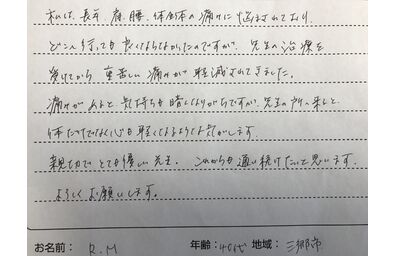 私は、長年、肩、腰、体全体の痛みに悩まされており、
どこへ行っても良くならなかったのですが、先生の治療を
受けてから重苦しい痛みが軽減されてきました。
痛みがあると気持ちも暗くなりがちですが、先生の所へ来ると
体だけでなく心も軽くなるような気がします。
親切でとても優しい先生。これからも通い続けたいと思います。
よろしくお願いします。
お名前： R.M 年齢：40代 地域：三郷市